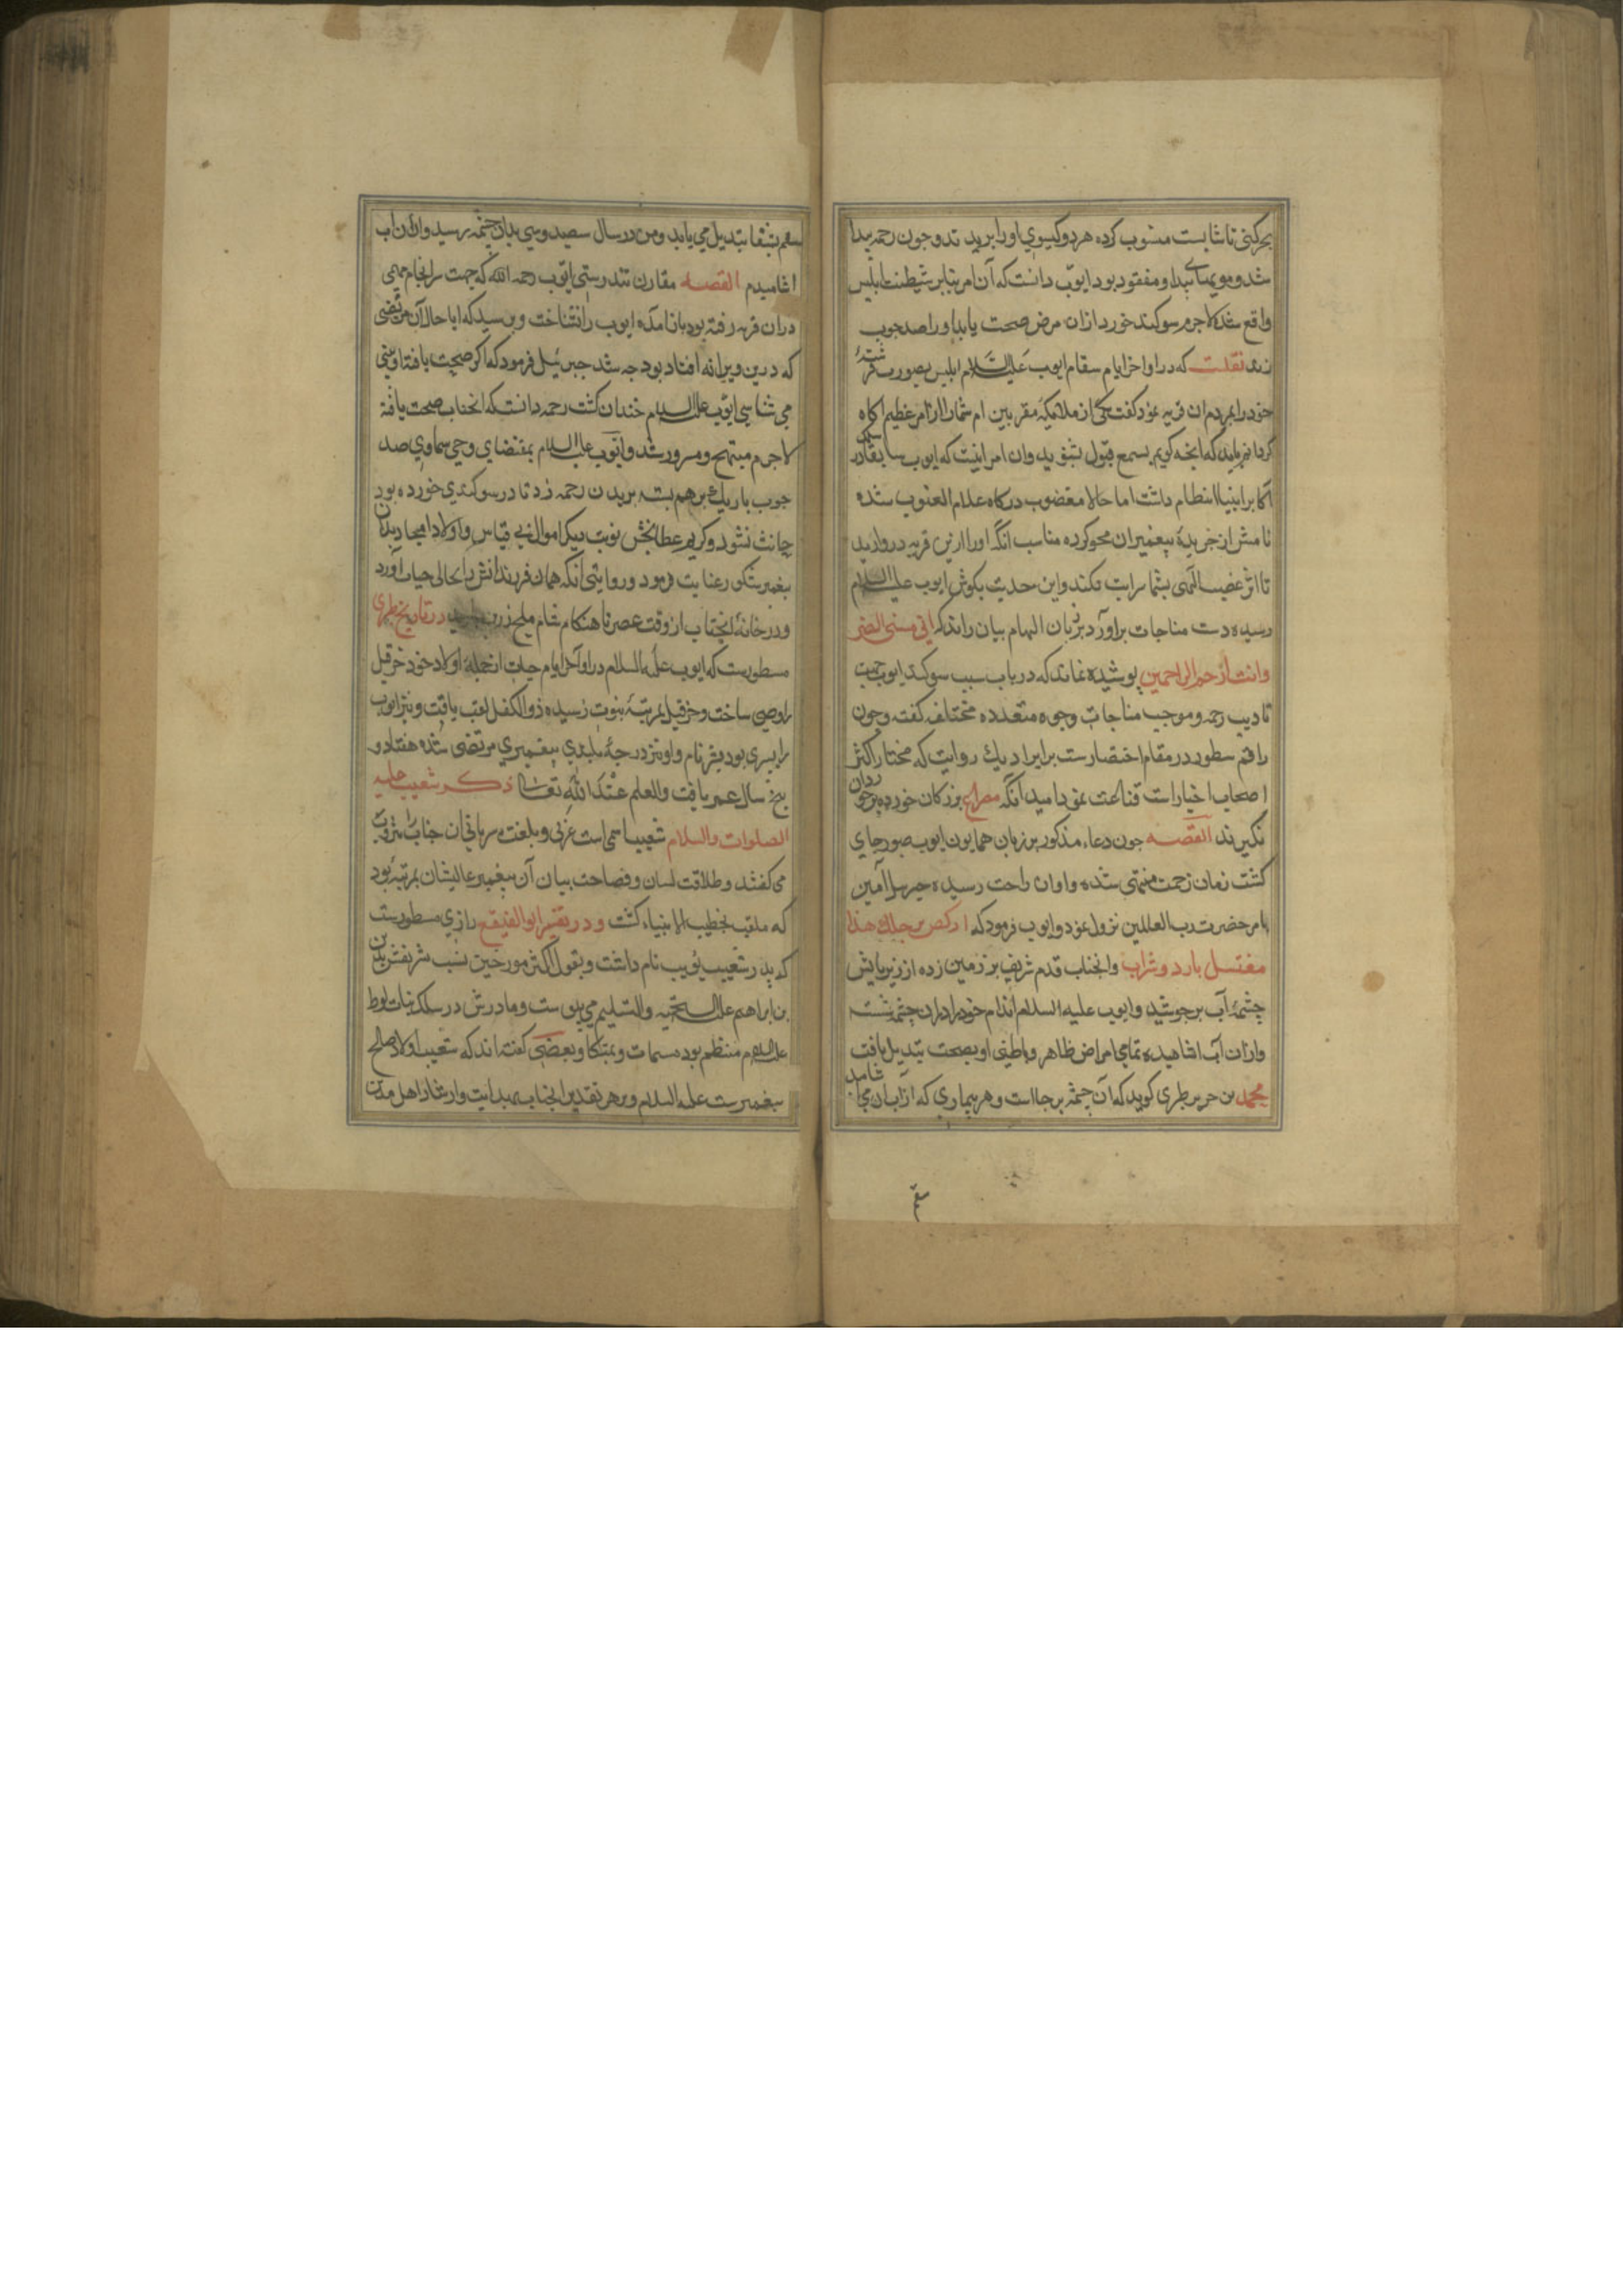 بحرکتی ناشایست منسوب کرده هر دو کیسوی او را ببریدند و جون رحمه پیدا
شد و مویهای پیدا و مفقود بود ایوب دانست که آن امر بنابر شیطنت ابلیس
واقع شده لاجرم سوکند خورد ازان مرض صحت یابد او را صد جوب
زند نقلست که در اواخر ایام سقام ایوب علیه السلام ابلیس بصورت فرشتهٔ
خود را بمردم ان قریه نمود کفت یکی از ملایکهٔ مقربین ام شما را از امر عظیم اکاه
کردانم باید که انجه کویم بسمع قبول بشنوید وان امر اینست که ایوب سابقا در سلک
اکابر انبیا انتظام داشت اما حالا مغضوب درکاه علام الغیوب شده
نامش از جریدهٔ پیغمبران محو کرده مناسب انکه او را ازین قریه دور سازید
تا اثر غضب الهی بشما سرایت نکند واین حدیث بکوش ایوب علیه السلام
رسیده دست مناجات براورد بزبان الهام بیان راند که انی مسنی الضر
وانت ارحم الراحمین پوشیده نماند که در باب سبب سوکند ایوب جهت
تادیب رحمه وموجب مناجات وجوه متعدده مختلف کفته وجون
راقم سطور در مقام اختصارست برایراد یک روایت که مختار اکثر
اصحاب اخیار است قناعت نمود امید انکه مصراع بزرکان خورده برخوردان
نکیرند القصه جون دعاء مذکور بر زبان همایون ایوب صبور جاری
کشت زمان زحمت منتهی شده واوان راحت رسیده جبریل امین
بامر حضرت رب العالمین نزول نمود وایوب فرمود که ارکض برجلک هذا
مغتسل بارد وشراب وانجناب قدم شریف بر زمین زده از زیر پایش
چشمهٔ آب برجوشید وایوب علیه السلام اندام خود را دران چشمه شست
وازان آب اشامیده تمامی امراض ظاهر وباطنی او بصحت تبدیل یافت
محمد بن جریر طبری کوید که آن چشمه برجا است وهر بیماری که ازآب ان می اشامد
سقم
سقم بشفا تبدیل می یابد ومن در سال سیصد وسی بدان چشمه رسید وازان اب
اشامیدم القصه مقارن تندرستی ایوب رحمه الله که جهت سرانجام مهمی
دران قریه رفته بود باز آمده ایوب را نشناخت وپرسید که ایا حال آن مریضی
که درین ویرانه افتاد بود جه شد جبرئیل فرمود که اکر صحت یافته او بینی
می شناسی ایوب علیه السلام خندان کشت رحمه دانست که انجناب صحت یافته
لاجرم مبتهج ومسرور شد وایوب علیه السلام بمقتضای وحی سماوی صد
جوب باریک برهم بسته بربدن رحمه زد تا در سوکندی خورده بود
حانث نشود وکریم عطابخش نوبت دیکر اموال بی قیاس واولاد امجاد بدان
پیغمبر شکور عنایت فرمود وروایتی انکه همان فرزندانش را بحالی حیات آورد
ودرخانهٔ انجناب از وقت عصر تا هنکام شام ملخ زرین در تاریخ طبری
مسطورست که ایوب علیه السلام در اواخر ایام حیات از جمله اولاد خود حزقیل
را وصی ساخت وحزقیل بمرتبهٔ نبوت رسیده ذو الکفل لقب یافت ونیز ایوب
را پسری بود بشر نام واو نیز درجهٔ بلندی پیغمبری مرتضی شده هفتاد و
پنج سال عمر یافت والعلم عند الله تعالی ذکر شعیب علیه
الصلوات والسلام شعیب اسمی است عربی وبلغت سریانی ان جناب را یثروب
می کفتند وطلاقت لسان وفصاحت بیان آن پیغمبر عالیشان بمرتبهٔ بود
که ملقب بخطیب الانبیاء کشت ودر تفسیر ابو الفتوح رازی مسطورست
که پدر شعیب نویب نام داشت وبقول اکثر مورخین نسب شریفش بمدین
بن ابراهیم علیه التحیه والتسلیم می پیوست ومادرش در سلک بنات لوط
علیه السلام منتظم بود مسمات وبعضی کفته اند که شعیب اولاد صالح
پیغمبرست علیه السلام وبرهر تقدیر انجناب بهدایت وارشاد اهل مدین